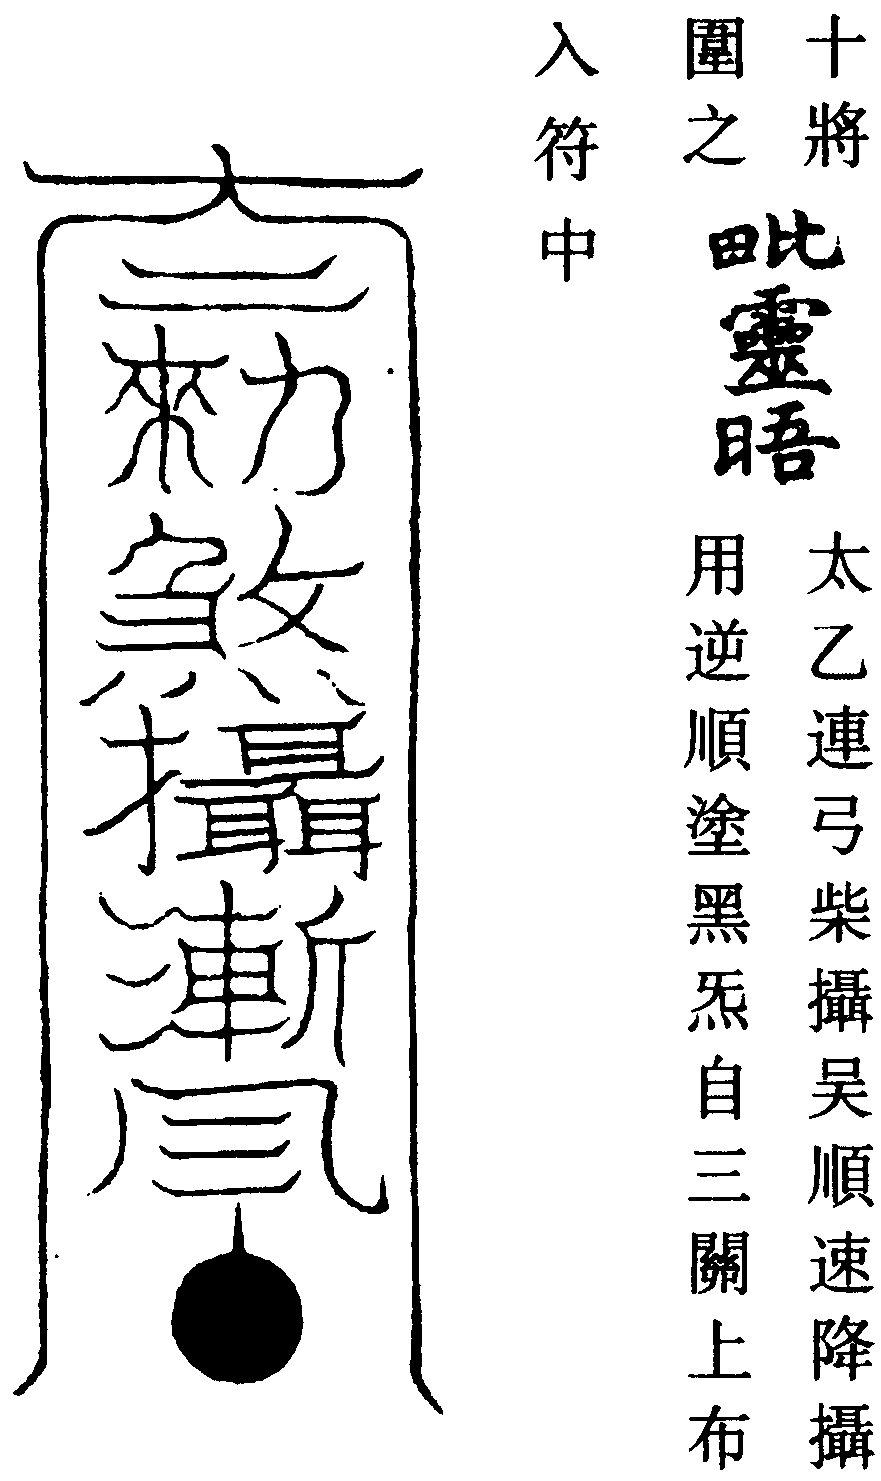 十將
圍之
毗靈晤
太乙連弓柴攝吴順速降攝
用逆順塗黑炁自三關上布
入符中
勑煞攝漸